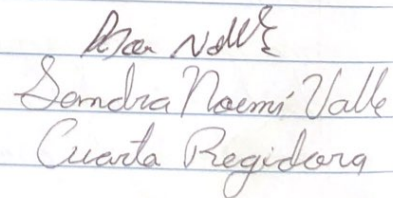 Sandra Noemí Valle
Cuarta Regidora